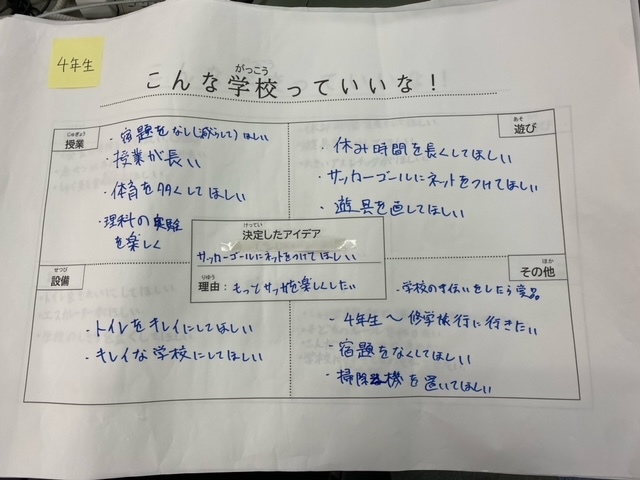 4年生
がっこう
こんな学校っていいな！
じゅぎょう
授業
・宿題をなし(減らして)ほしい
・授業が長い
・体育を多くしてほしい
・理科の実験
を楽しく
あそ
遊び
・休み時間を長くしてほしい
・サッカーゴールにネットをつけてほしい
・遊具を直してほしい
けってい
決定したアイデア
サッカーゴールにネットをつけてほしい
りゆう
理由：もっとサッカーを楽しくしたい
せつび
設備
・トイレをキレイにしてほしい
・キレイな学校にしてほしい
ほか
その他
・学校の手伝いをしたら景品
・4年生〜修学旅行に行きたい
・宿題をなくしてほしい
・掃除機を置いてほしい